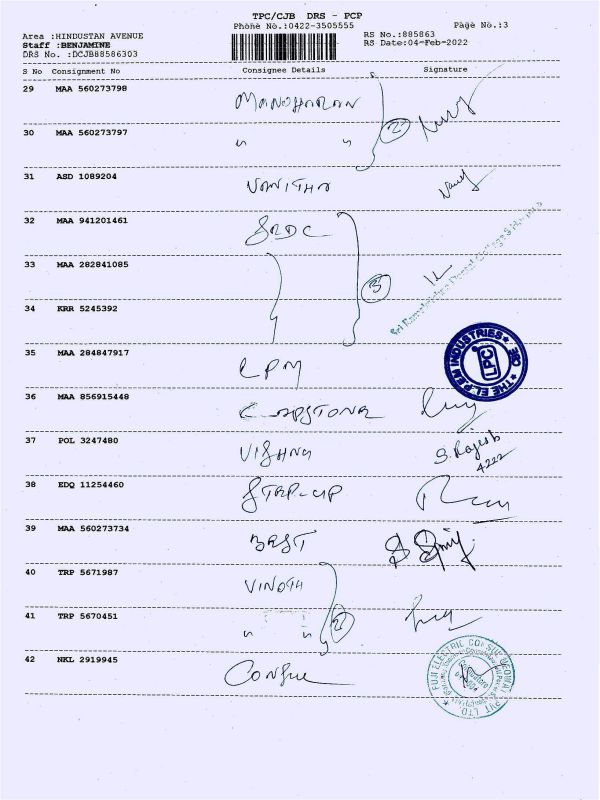 TPC/CJB DRS - PCP
Phone No.:0422-3505555
Page No.:3
Area :HINDUSTAN AVENUE
RS No.:885863
Staff :BENJAMINE
RS Date:04-Feb-2022
DRS No. :DCJB88586303
S No Consignment No Consignee Details Signature
29 MAA 560273798 MANOHARAN 2
30 MAA 560273797 " "
31 ASD 1089204 VANITHA
32 MAA 941201461 SRDC
33 MAA 282841085 3
Sri Ramakrishna Dental College
34 KRR 5245392
35 MAA 284847917 LPM
THE EL.P.EM INDUSTRIES
LPC
CBE
36 MAA 856915448 CAPSTONE
37 POL 3247480 VISHNU S. Rajesh
4222
38 EDQ 11254460 STEP-UP
39 MAA 560273734 BEST
40 TRP 5671987 VINOTH
41 TRP 5670451 " " 2
42 NKL 2919945 CONSUL
FUJI ELECTRIC CONSUL NEOWATT PVT LTD.